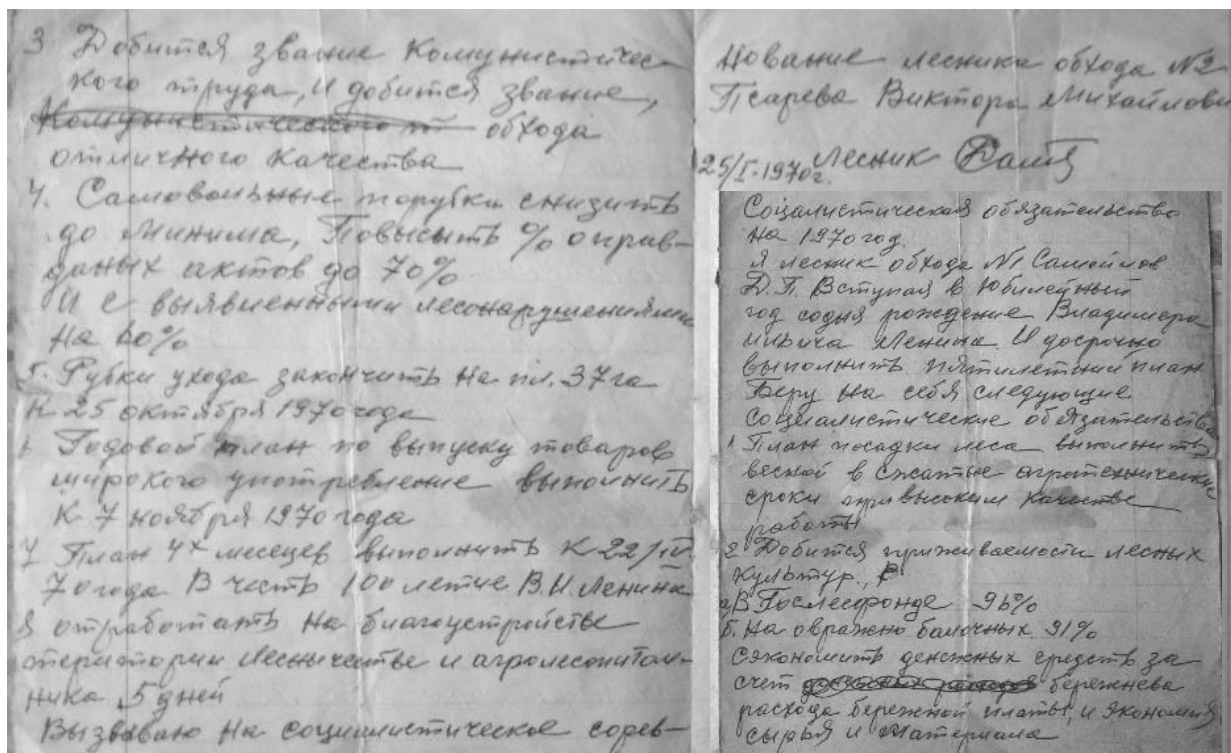 3 Добится звание Комунистичес-
кого труда, и добится звание,
Комунистического т обхода
отличного качества
4. Самовольные порубки снизить
до минима, Повысыть % оправ-
даных актов до 70%
И с выявленными лесонарушениями
на 60%
5. Рубки ухода закончить на пл. 37 га
К 25 октября 1970 года
6 Годовой план по выпуску товаров
широкого употребление выполнить
К 7 ноября 1970 года
7 План 4х месецев выполнить К 22/IV
70 года В честь 100 летие В.И. Ленина
8 отработать на благоустройстве
територии Лесничестве и агролесопитом-
ника 5 дней
Вызываю на социалистическое сорев-
нование лесника обхода №2
Псарева Виктора Михайлова
25/I-1970г. Лесник
Социалистическая обязательство
на 1970 год.
Я лесник обхода №1 Самойлов
Д.П. Вступая в Юбилейный
год содня рождение Владимера
Ильича Ленина. И досрочно
выполнить пятилетний план
Беру на себя следующие
социалистические обязательства
1 План посадки леса выполнить
весной в сжатые агротехнические
сроки при высоким качестве
работы
2 Добится приживаемости лесных
культур.,
а, В Гослесфонде 96%
б. На овражно балочных 91%
Сэкономить денежных средств за
счет бережнева
расхода бережной платы, и экономия
сырья и материала